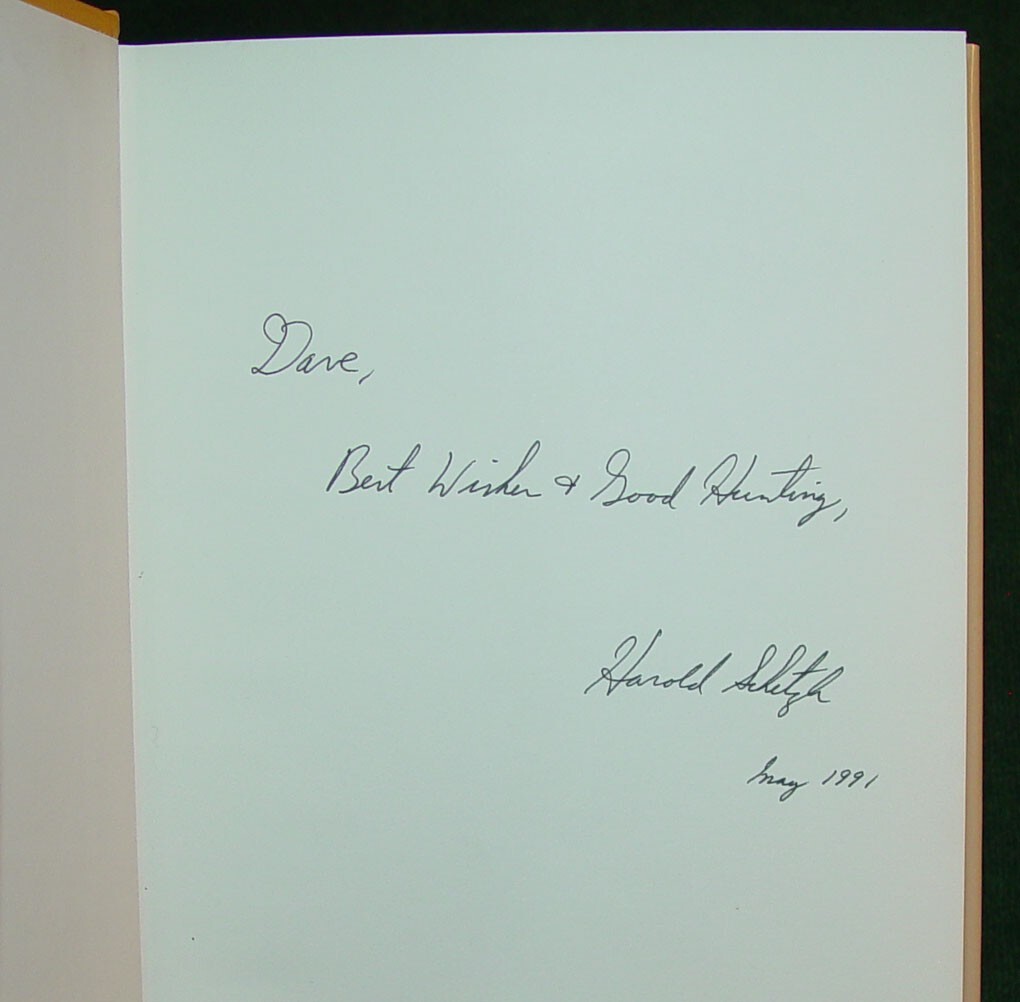 Dave,
Best Wishes & Good Hunting,
Harold
May 1991